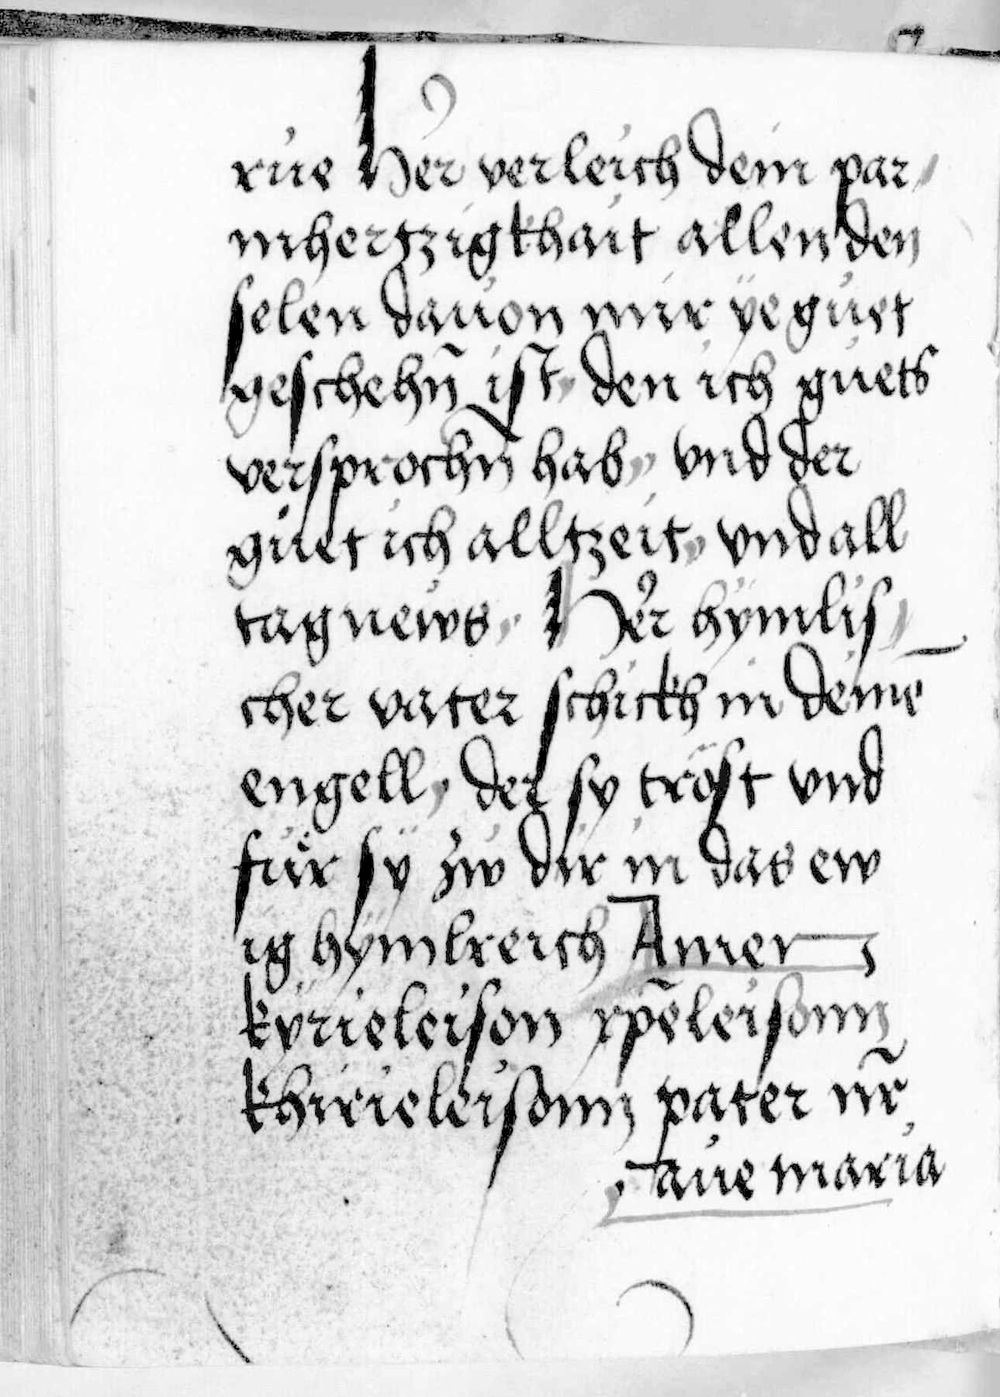 rue Her verleich dein par
mhertzigkhait allen den
selen dauon mir ÿe guet
geschehn̄ ist den ich guets
versprochn̄ hab vnd der
guet ich alltzeit vnd all
tag news Her hÿmlis
cher vater schickh in deinē
engell der sy tröst vnd
für sÿ zw dir in das ew
ig hÿmlreich Amen
kyrieleison xp̄eleisonn
khirieleisonn pater nr̄
aue maria